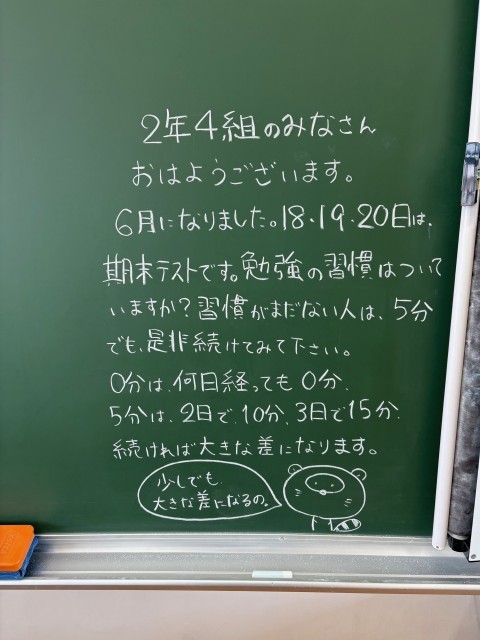 2年4組のみなさん
おはようございます。
6月になりました。18、19、20日は、
期末テストです。勉強の習慣はついて
いますか?習慣がまだない人は、5分
でも、是非続けてみて下さい。
0分は、何日経っても0分、
5分は、2日で、10分、3日で15分、
続ければ大きな差になります。
少しでも、
大きな差になるの。